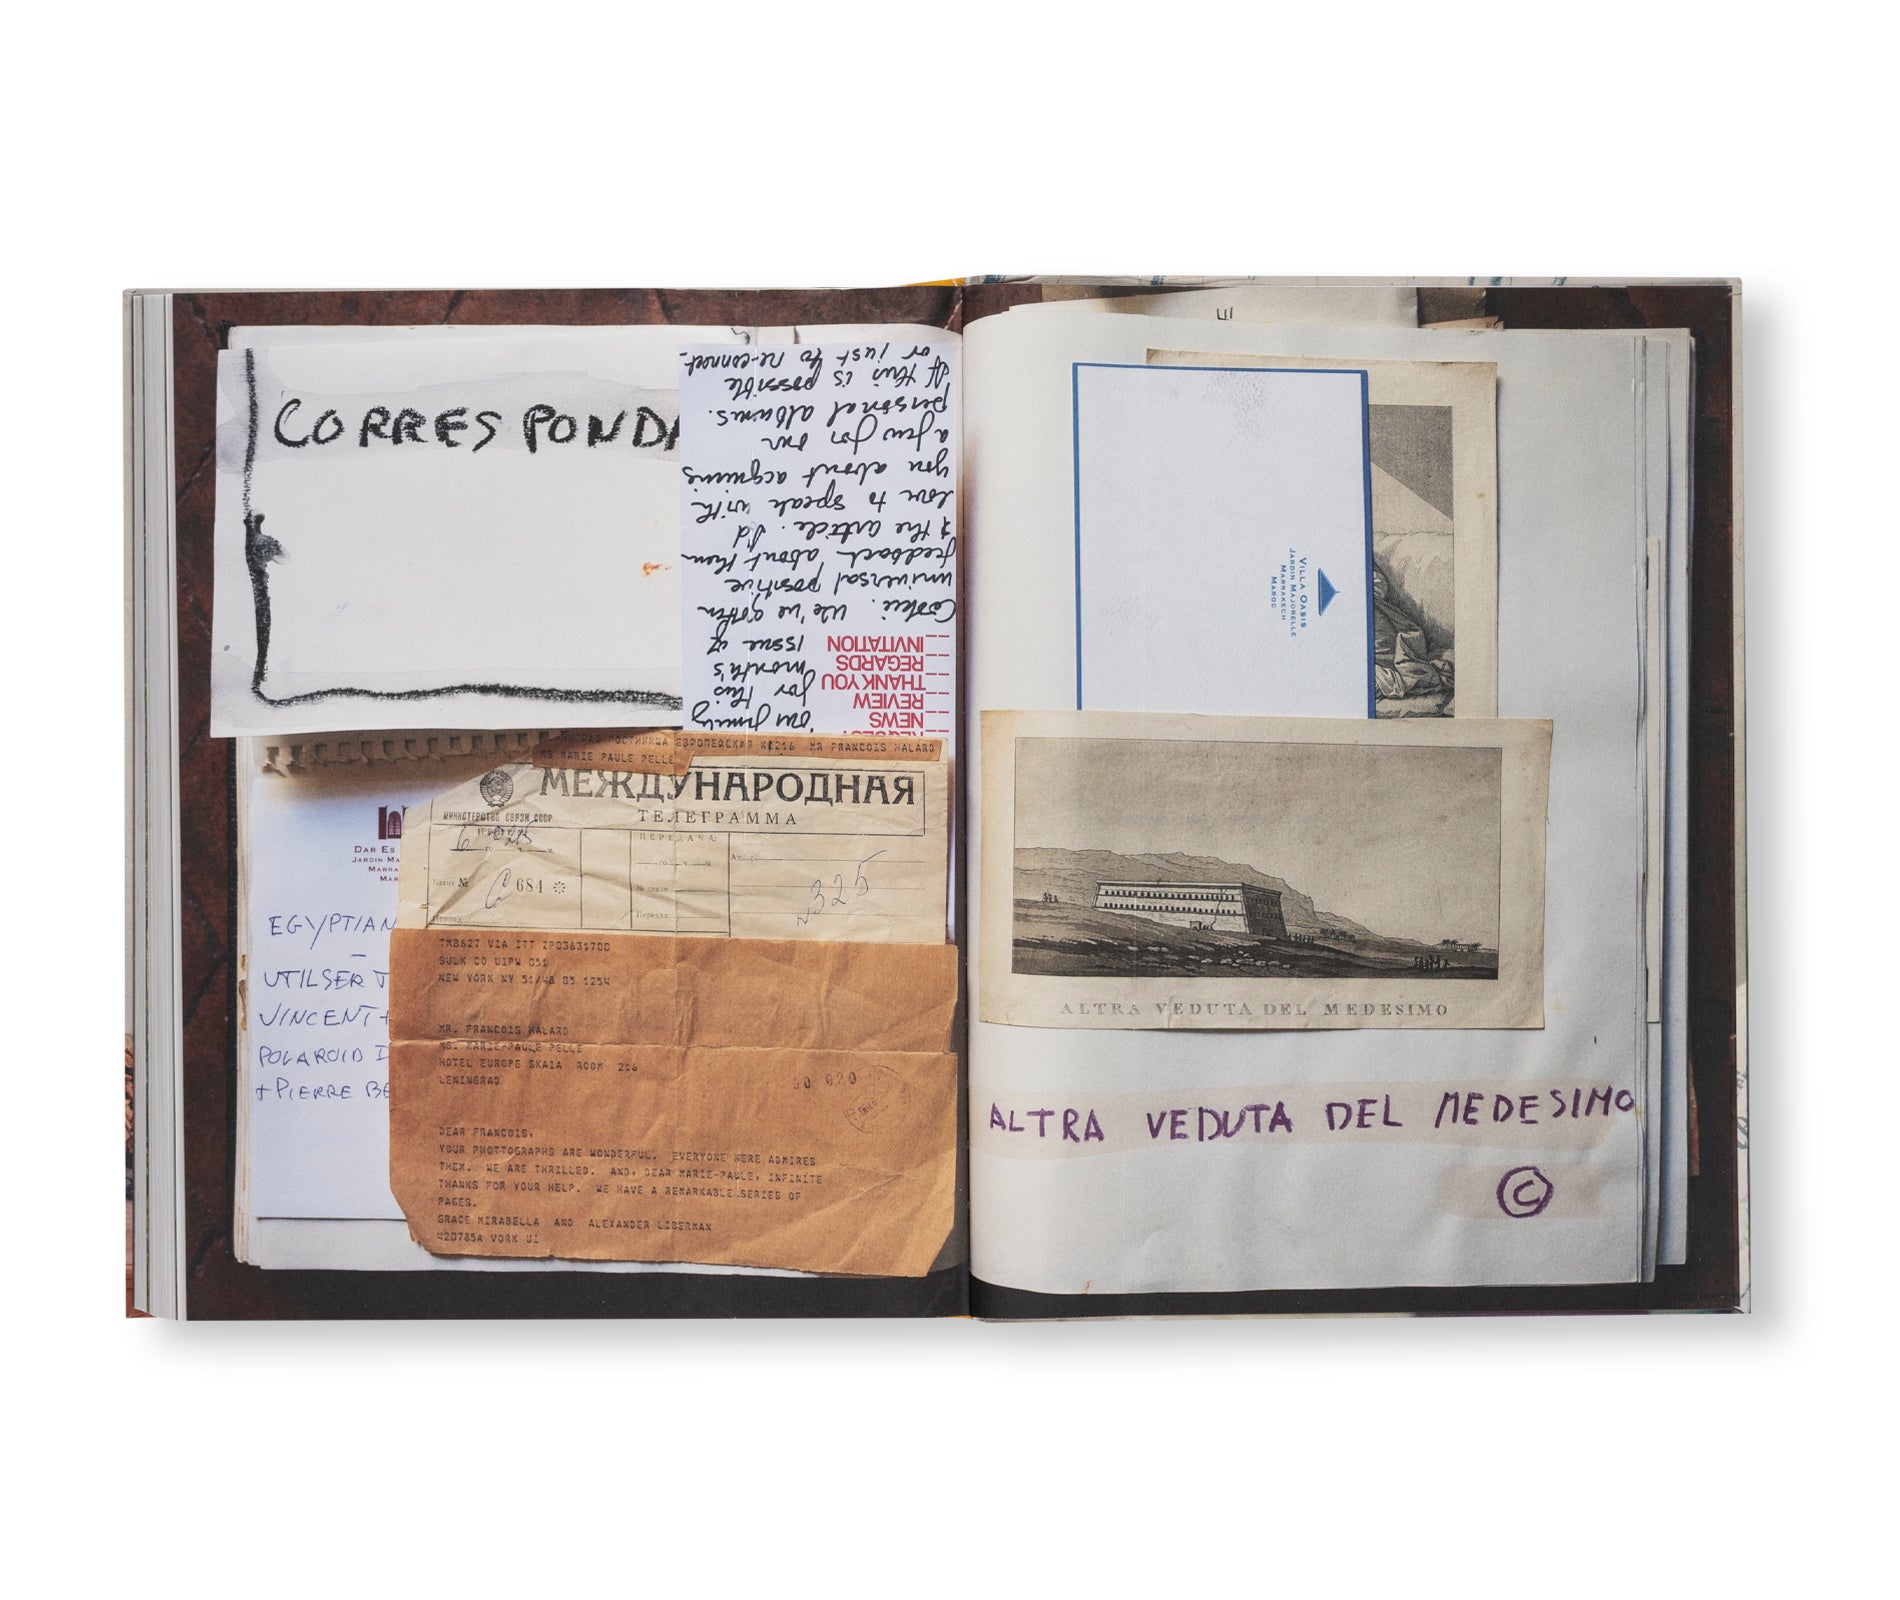 CORRESPONDA
our family
for this
month's
issue of
Cookie. We've gotten
universal positive
feedback about them
& the article. I'd
love to speak with
you about acquiring
a few for our
personal albums.
If this is possible
or just to re-connect.
REQUEST
NEWS
REVIEW
THANK YOU
REGARDS
INVITATION
ГОСТИНИЦА ЕВРОПЕЙСКАЯ К 216 MR FRANCOIS HALARD
MS MARIE PAULE PELLE
МЕЖДУНАРОДНАЯ
МИНИСТЕРСТВО СВЯЗИ СССР
ТЕЛЕГРАММА
ПЕРЕДАЧА:
Бланк №
684
№ связи
Передал:
Принял:
325
DAR ES
JARDIN MA
MARRA
MAR
EGYPTIAN
UTILSER
VINCENT +
POLAROID
+ PIERRE BE
TM8627 VIA ITT ZP03631700
SULK CO UIPW 051
NEW YORK NY 51/48 05 1254
MR. FRANCOIS HALARD
MS. MARIE-PAULE PELLE
HOTEL EUROPE SKAIA ROOM 216
LENINGRAD
DEAR FRANCOIS,
YOUR PHOTTOGRAPHS ARE WONDERFUL. EVERYONE HERE ADMIRES
THEM. WE ARE THRILLED. AND, DEAR MARIE-PAULE, INFINITE
THANKS FOR YOUR HELP. WE HAVE A REMARKABLE SERIES OF
PAGES.
GRACE MIRABELLA AND ALEXANDER LIBERMAN
420785A VORK UI
VILLA OASIS
JARDIN MAJORELLE
MARRAKECH
MAROC
ALTRA VEDUTA DEL MEDESIMO
ALTRA VEDUTA DEL MEDESIMO
©